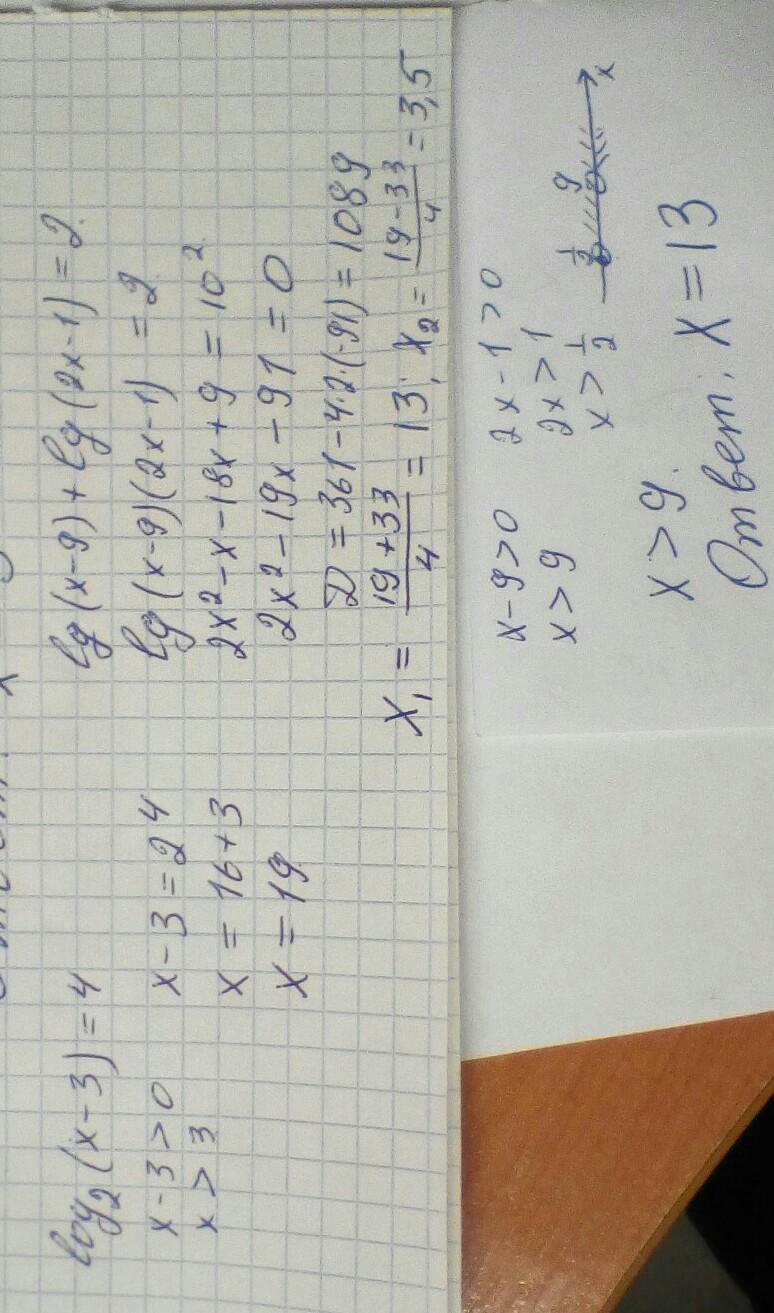 log₂(x-3)=4
x-3>0
x>3
x-3=2⁴
x=16+3
x=19
lg(x-9)+lg(2x-1)=2
lg(x-9)(2x-1)=2
2x²-x-18x+9=10²
2x²-19x-91=0
D=361-4·2·(-91)=1089
x₁=(19+33)/4=13; x₂=(19-33)/4=3,5
x-9>0
x>9
2x-1>0
2x>1
x>1/2
1/2 9 x
x>9.
Ответ: x=13